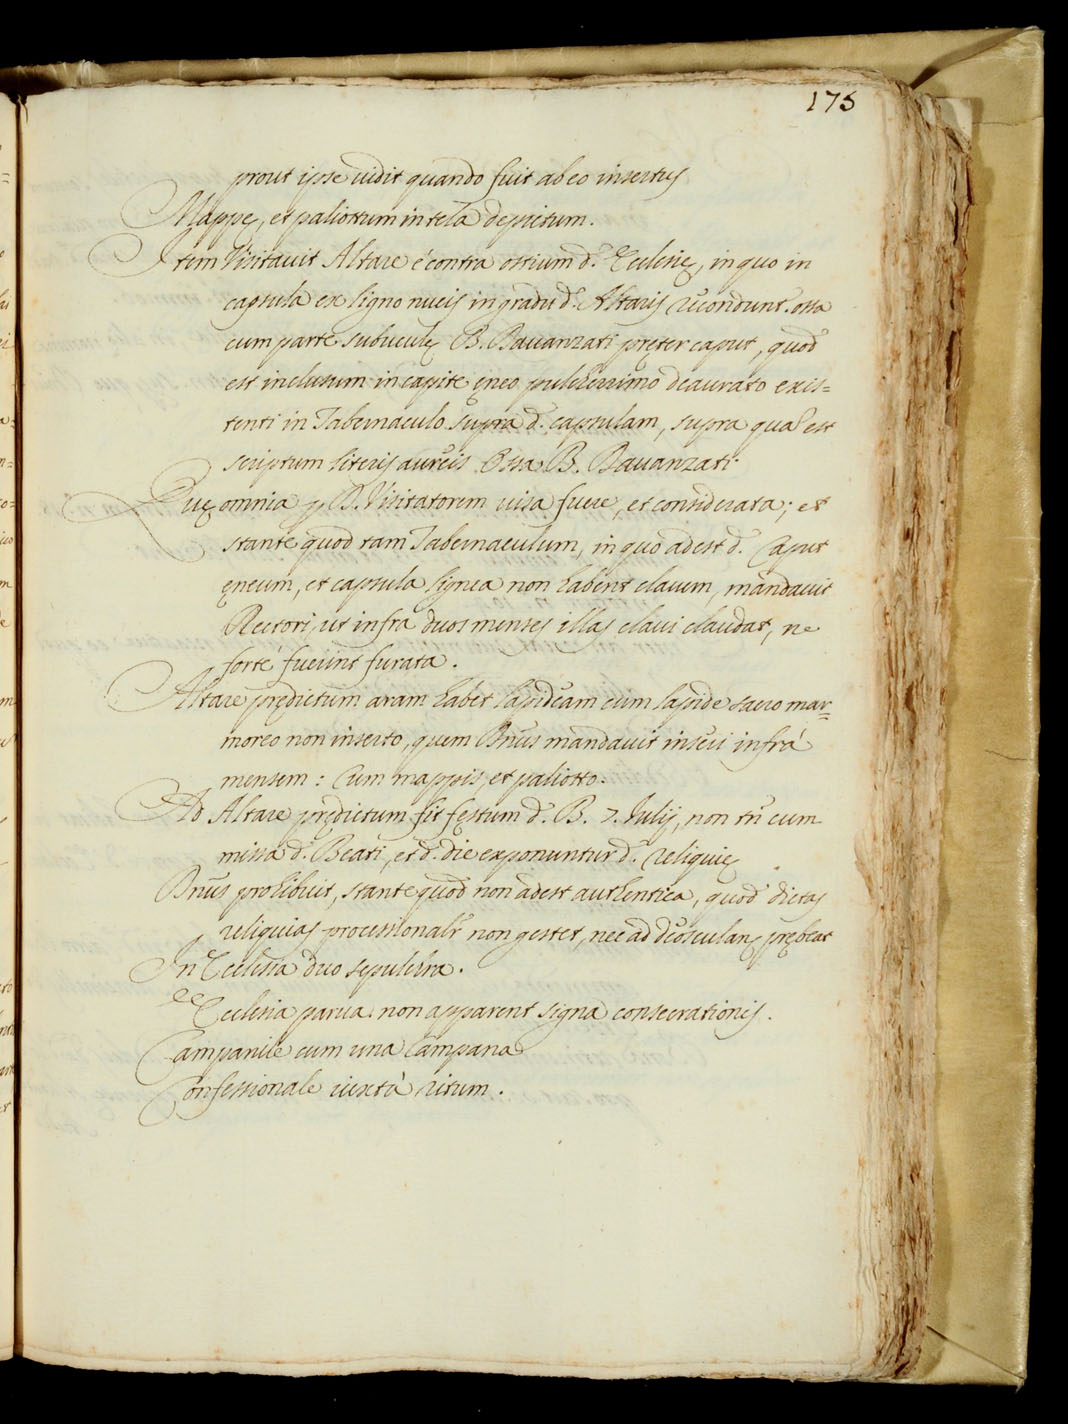 175
prout ipse uidit quando fuit ab eo insertus
Mappę, et paliottum in tela depictum.
Item Visitauit Altare é contra ostium d.ę Ecclesię, in quo in
capsula ex ligno nucis in gradu d.i Altaris recondunt.r ossa
cum parte subuculę B. Bauanzati pręter caput, quod
est inclusum in capite ęneo pulcherrimo deaurato exis=
tenti in Tabernaculo supra d. capsulam, supra quã est
scriptum literis aureis Ossa B. Bauanzati
Quę omnia p D. Visitatorem uisa fuere, et considerata; et
stante quod tam Tabernaculum, in quo adest d. Caput
ęneum, et capsula lignea non habent clauem, mandauit
Rectori, ut infra duos menses illas claui claudat, ne
forté fuerint furata.
Altare prędictum aram habet lapideam cum lapide sacro mar=
moreo non inserto, quem Dnũs mandauit inseri infrá
mensem: Cum mappis, et paliotto.
Ad Altare prędictum fit festum d.i B. 7. Iulij, non tñ cum
missa d.i Beati, et d. die exponuntur d. reliquię
Dnũs prohibuit, stante quod non adest authentica, quod dictas
reliquias processionalr non gestet, nec ad deosculanᵈ prębeat
In Ecclesia duo sepulchra.
Ecclesia parua. non apparent signa consecrationis.
Campanile cum una Campana
Confessionale iuxtá ritum.